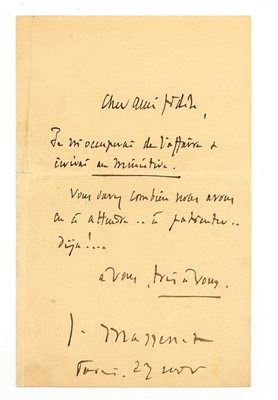 Cher ami fidèle,
Je m'occuperai de l'affaire &
écrirai au Ministère.
Vous savez combien nous avons
eu à attendre .. à patienter ..
déjà !...
à vous, très à vous.
J. Massenet
Paris. 27 nov